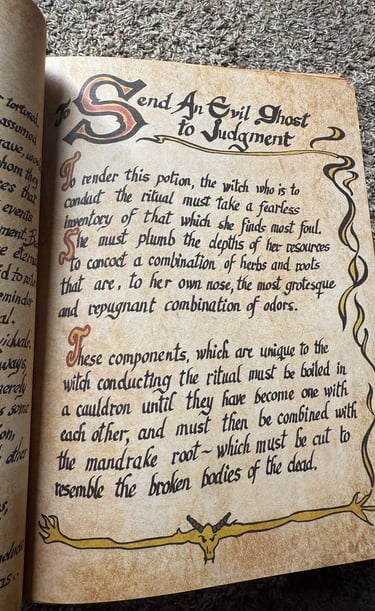 tortured,
assumed
rave, wou
whom they
es that
events
ment. B
e etern
d to retu
reminder
al.
viduals.
ways,
merely
s some
om
other
s,
as..
To Send An Evil Ghost
to Judgment
To render this potion, the witch who is to
conduct the ritual must take a fearless
inventory of that which she finds most foul.
She must plumb the depths of her resources
to concoct a combination of herbs and roots
that are, to her own nose, the most grotesque
and repugnant combination of odors.
These components, which are unique to the
witch conducting the ritual must be boiled in
a cauldron until they have become one with
each other, and must then be combined with
the mandrake root~ which must be cut to
resemble the broken bodies of the dead.